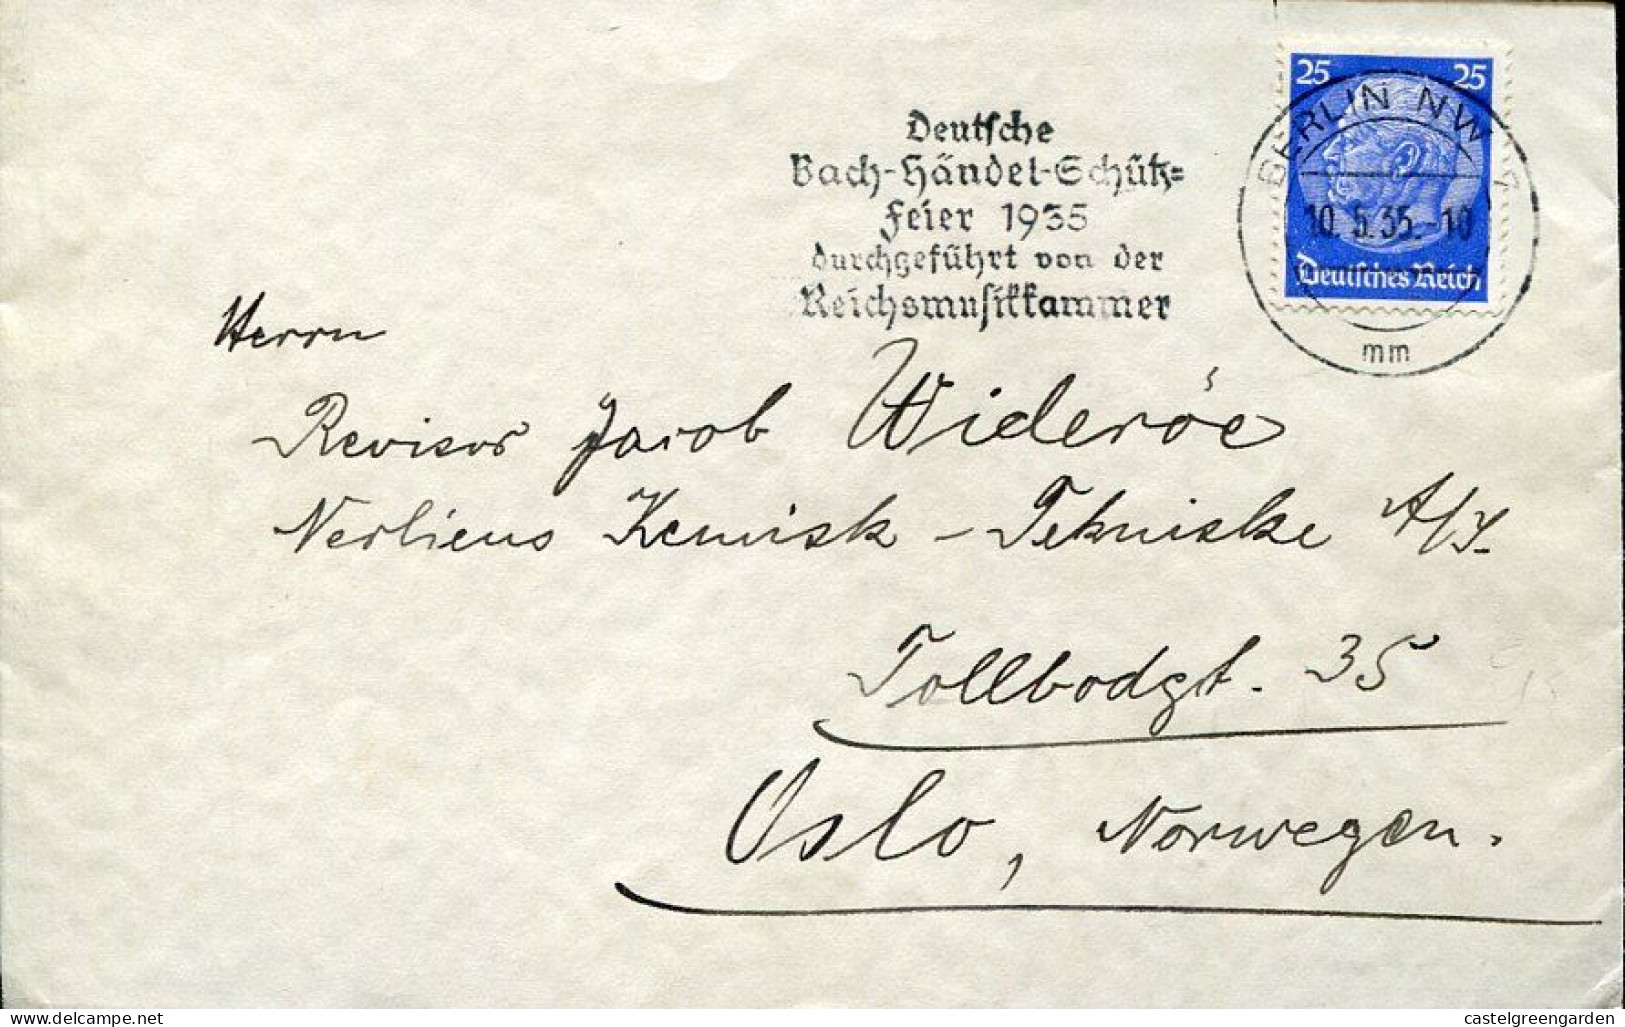 Deutsche
Bach-Händel-Schütz=
Feier 1935
durchgeführt von der
Reichsmusikkammer
25 25
Deutsches Reich
BERLIN NW 7
10.5.35.-10
mm
Herrn
Revisor Jacob Wideröe
Nerliens Kemisk-Tekniske A/S.
Tollbodgt. 35
Oslo, Norwegen.
delcampe.net
castelgreengarden